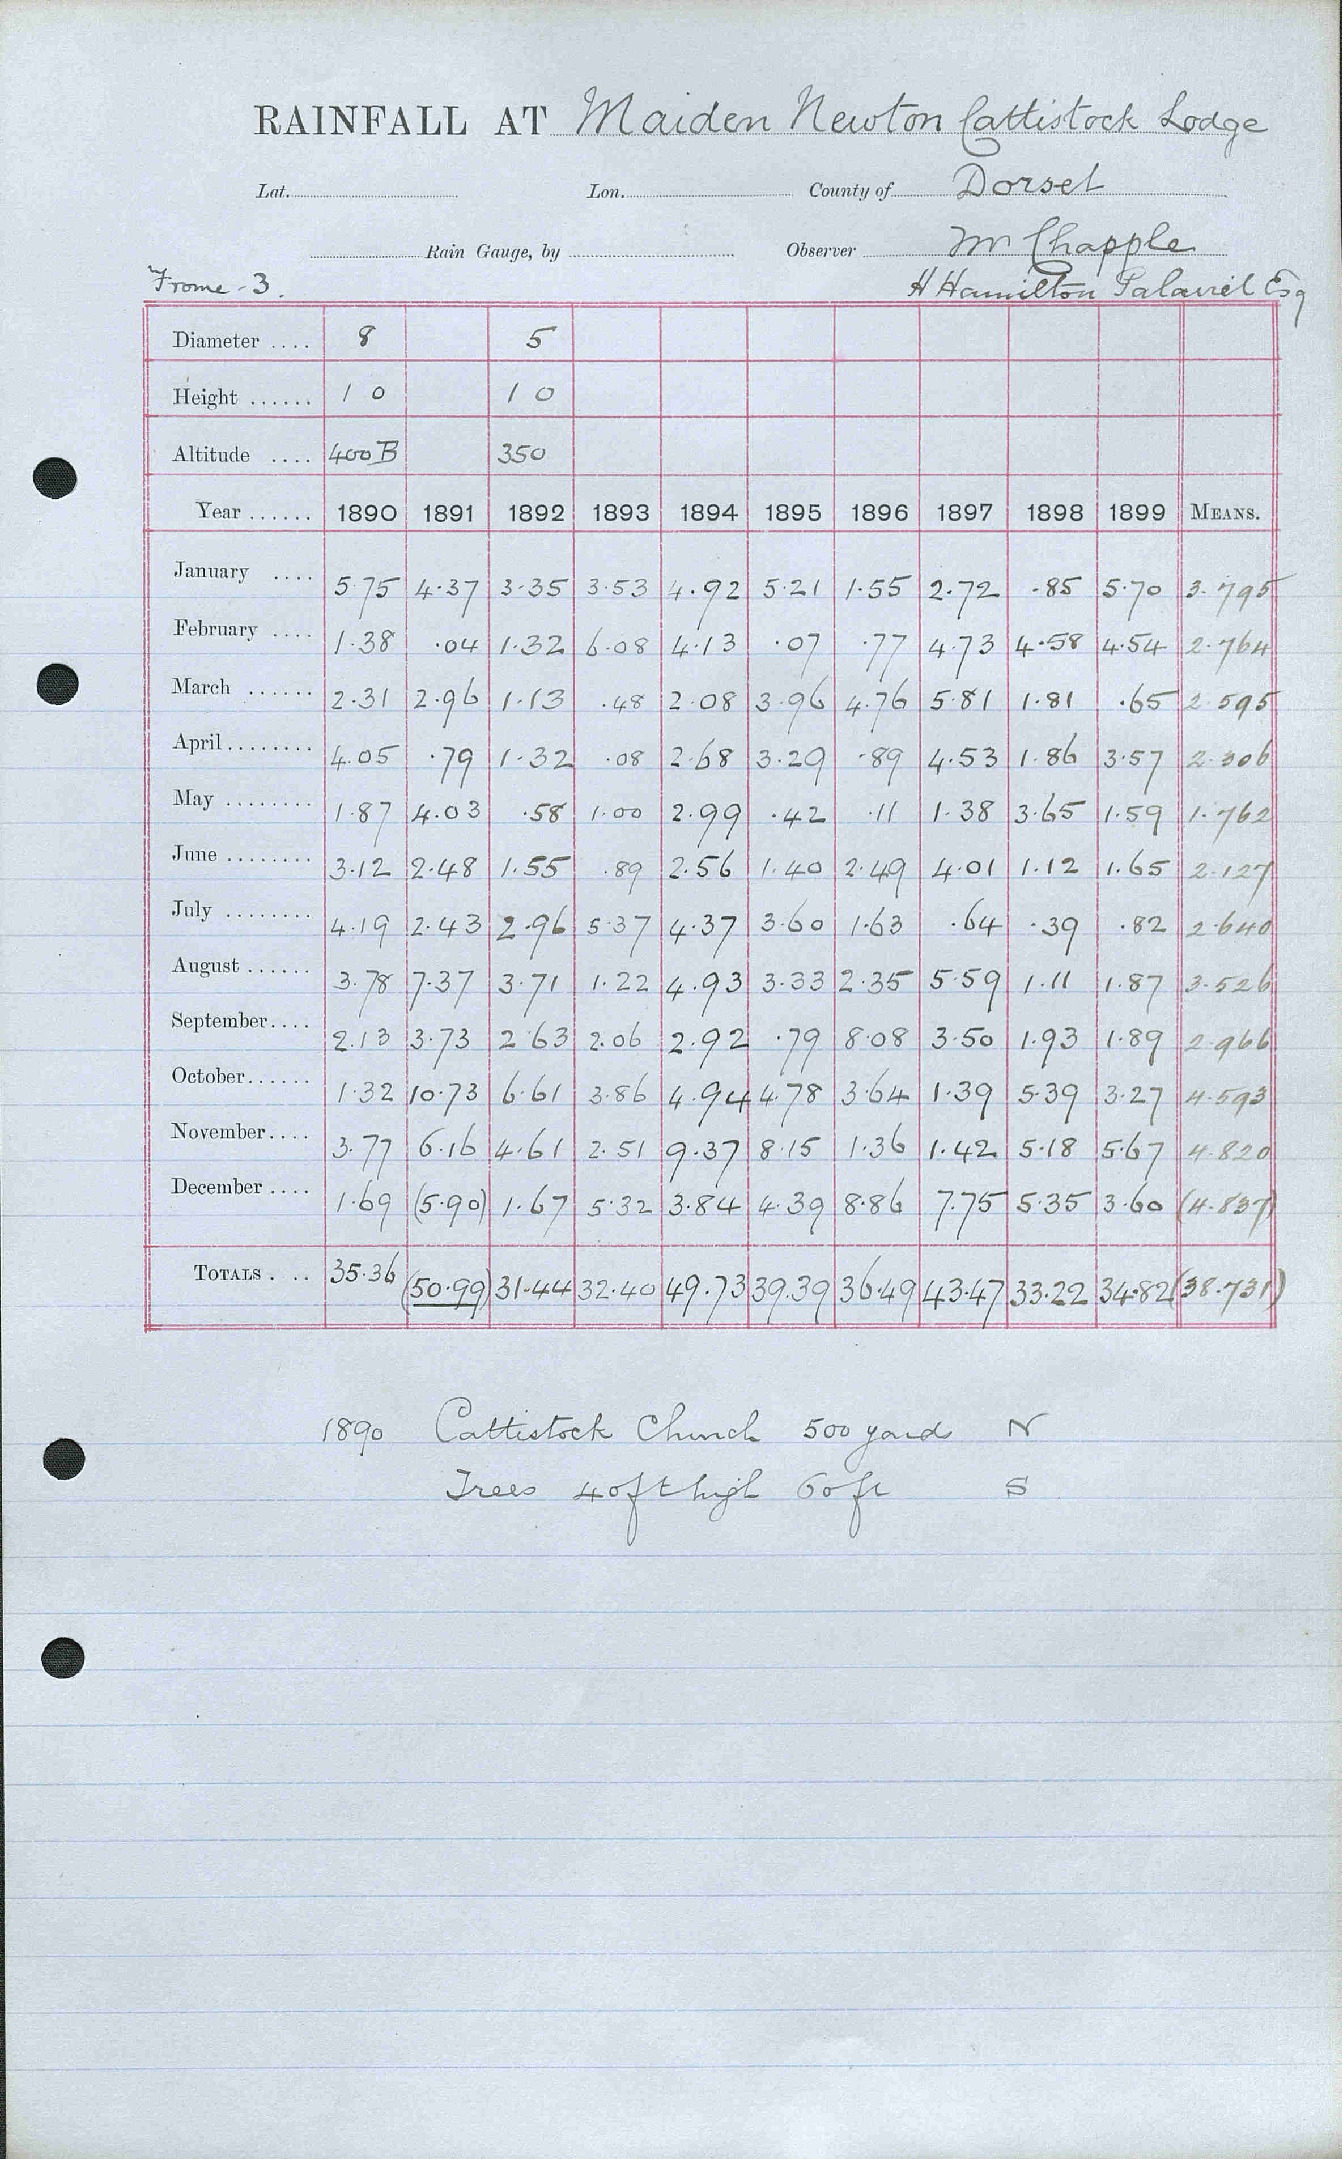 RAINFALL AT Maiden Newton Cattistock Lodge
Lat. Lon. County of Dorset
Rain Gauge, by Observer Mr Chapple
Frome - 3. H Hamilton Esq
Diameter .... 8 5
Height ...... 1 0 1 0
Altitude .... 400 B 350
Year ...... 1890 1891 1892 1893 1894 1895 1896 1897 1898 1899 MEANS.
January .... 5.75 4.37 3.35 3.53 4.92 5.21 1.55 2.72 .85 5.70 3.795
February .... 1.38 .04 1.32 6.08 4.13 .07 .77 4.73 4.58 4.54 2.764
March ...... 2.31 2.96 1.13 .48 2.08 3.96 4.76 5.81 1.81 .65 2.595
April ........ 4.05 .79 1.32 .08 2.68 3.29 .89 4.53 1.86 3.57 2.306
May ........ 1.87 4.03 .58 1.00 2.99 .42 .11 1.38 3.65 1.59 1.762
June ........ 3.12 2.48 1.55 .89 2.56 1.40 2.49 4.01 1.12 1.65 2.127
July ........ 4.19 2.43 2.96 5.37 4.37 3.60 1.63 .64 .39 .82 2.640
August ...... 3.78 7.37 3.71 1.22 4.93 3.33 2.35 5.59 1.11 1.87 3.526
September.... 2.13 3.73 2.63 2.06 2.92 .79 8.08 3.50 1.93 1.89 2.966
October...... 1.32 10.73 6.61 3.86 4.94 4.78 3.64 1.39 5.39 3.27 4.593
November.... 3.77 6.16 4.61 2.51 9.37 8.15 1.36 1.42 5.18 5.67 4.820
December .... 1.69 (5.90) 1.67 5.32 3.84 4.39 8.86 7.75 5.35 3.60 (4.837)
TOTALS . .. 35.36 (50.99) 31.44 32.40 49.73 39.39 36.49 43.47 33.22 34.82 (38.731)
1890 Cattistock Church 500 yards N
Trees 40ft high 60 ft S